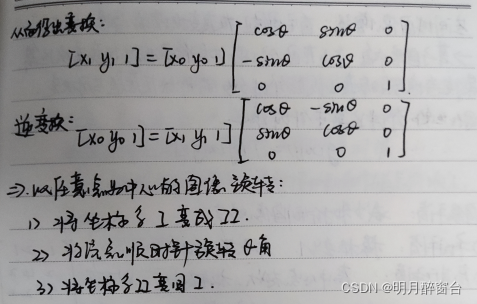 从而得出变换:
[x₁ y₁ 1] = [x₀ y₀ 1] [cosθ sinθ 0
-sinθ cosθ 0
0 0 1]
逆变换: [x₀ y₀ 1] = [x₁ y₁ 1] [cosθ -sinθ 0
sinθ cosθ 0
0 0 1]
⇒ 以任意点为中心的图像旋转:
1> 将坐标系I变成II.
2> 将点顺时针旋转θ角
3> 将坐标系II变回I.
CSDN @明月醉窗台